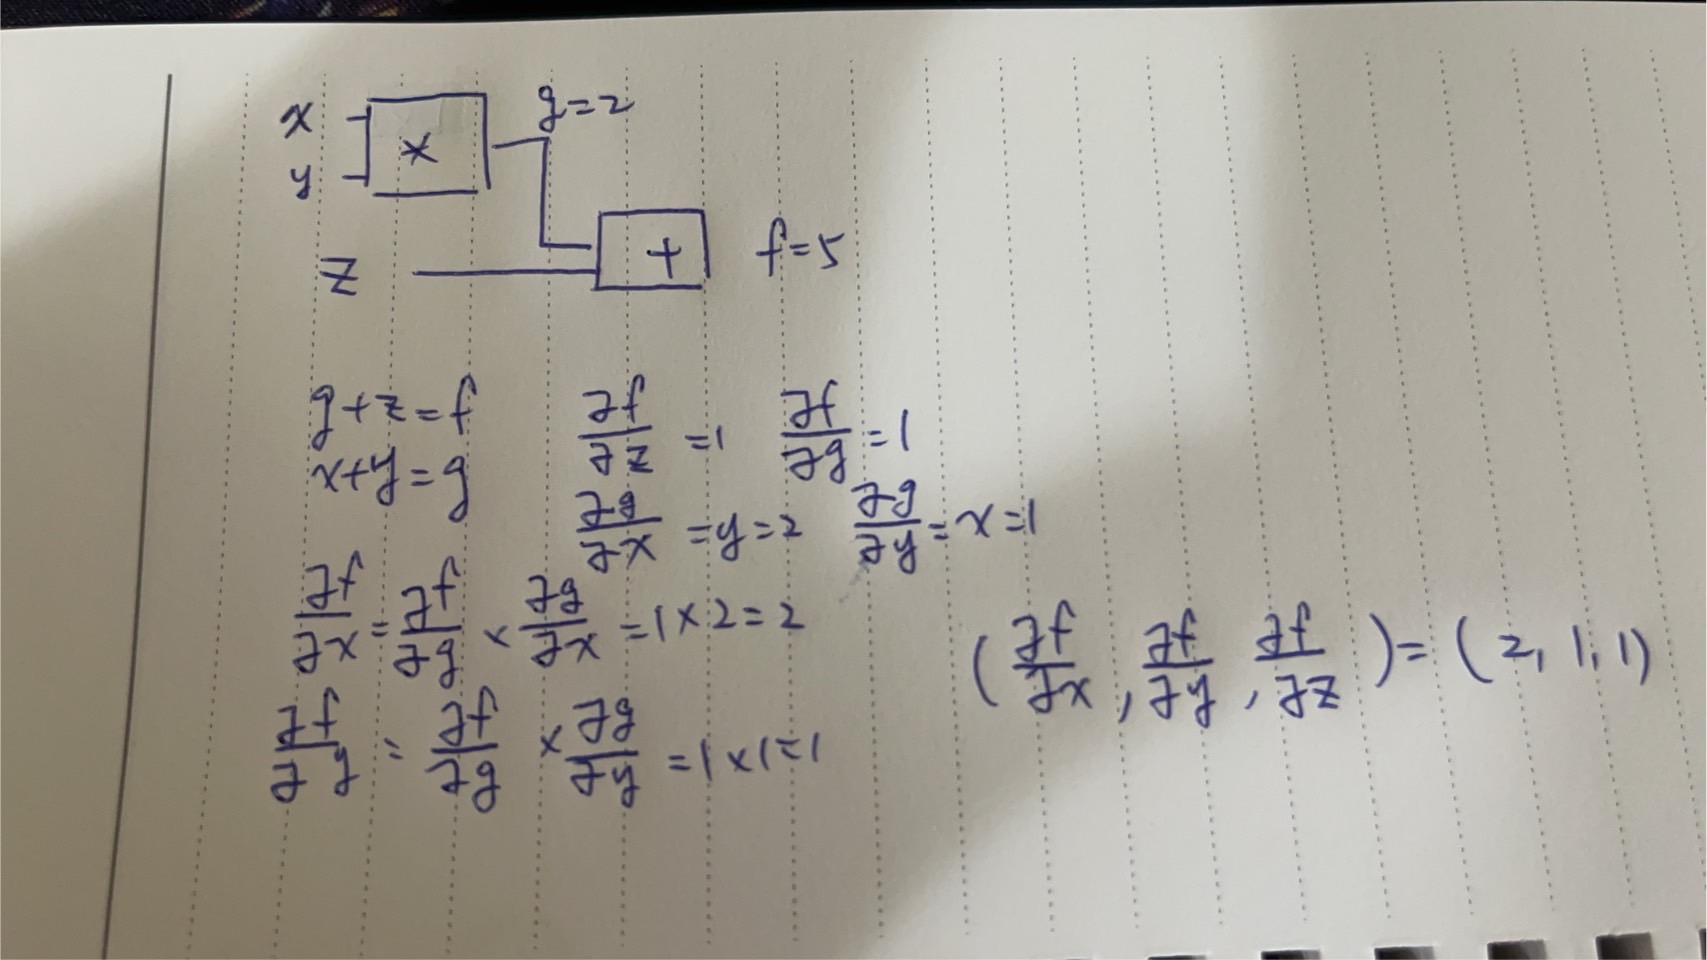 x
y
×
g=2
z
+
f=5
g+z=f
x+y=g
∂f/∂z =1
∂f/∂g =1
∂g/∂x =y=2
∂g/∂y =x=1
∂f/∂x = ∂f/∂g × ∂g/∂x =1×2=2
∂f/∂y = ∂f/∂g × ∂g/∂y =1×1=1
(∂f/∂x, ∂f/∂y, ∂f/∂z)=(2,1,1)